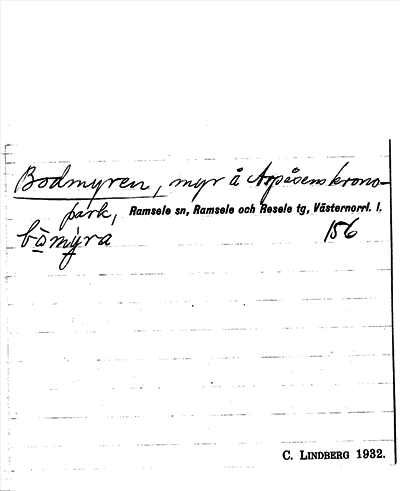 Bodmyren, myr å Aspåsens krono-
park, Ramsele sn, Ramsele och Resele tg, Västernorrl. l.
bò̲mỳra 156
C. LINDBERG 1932.